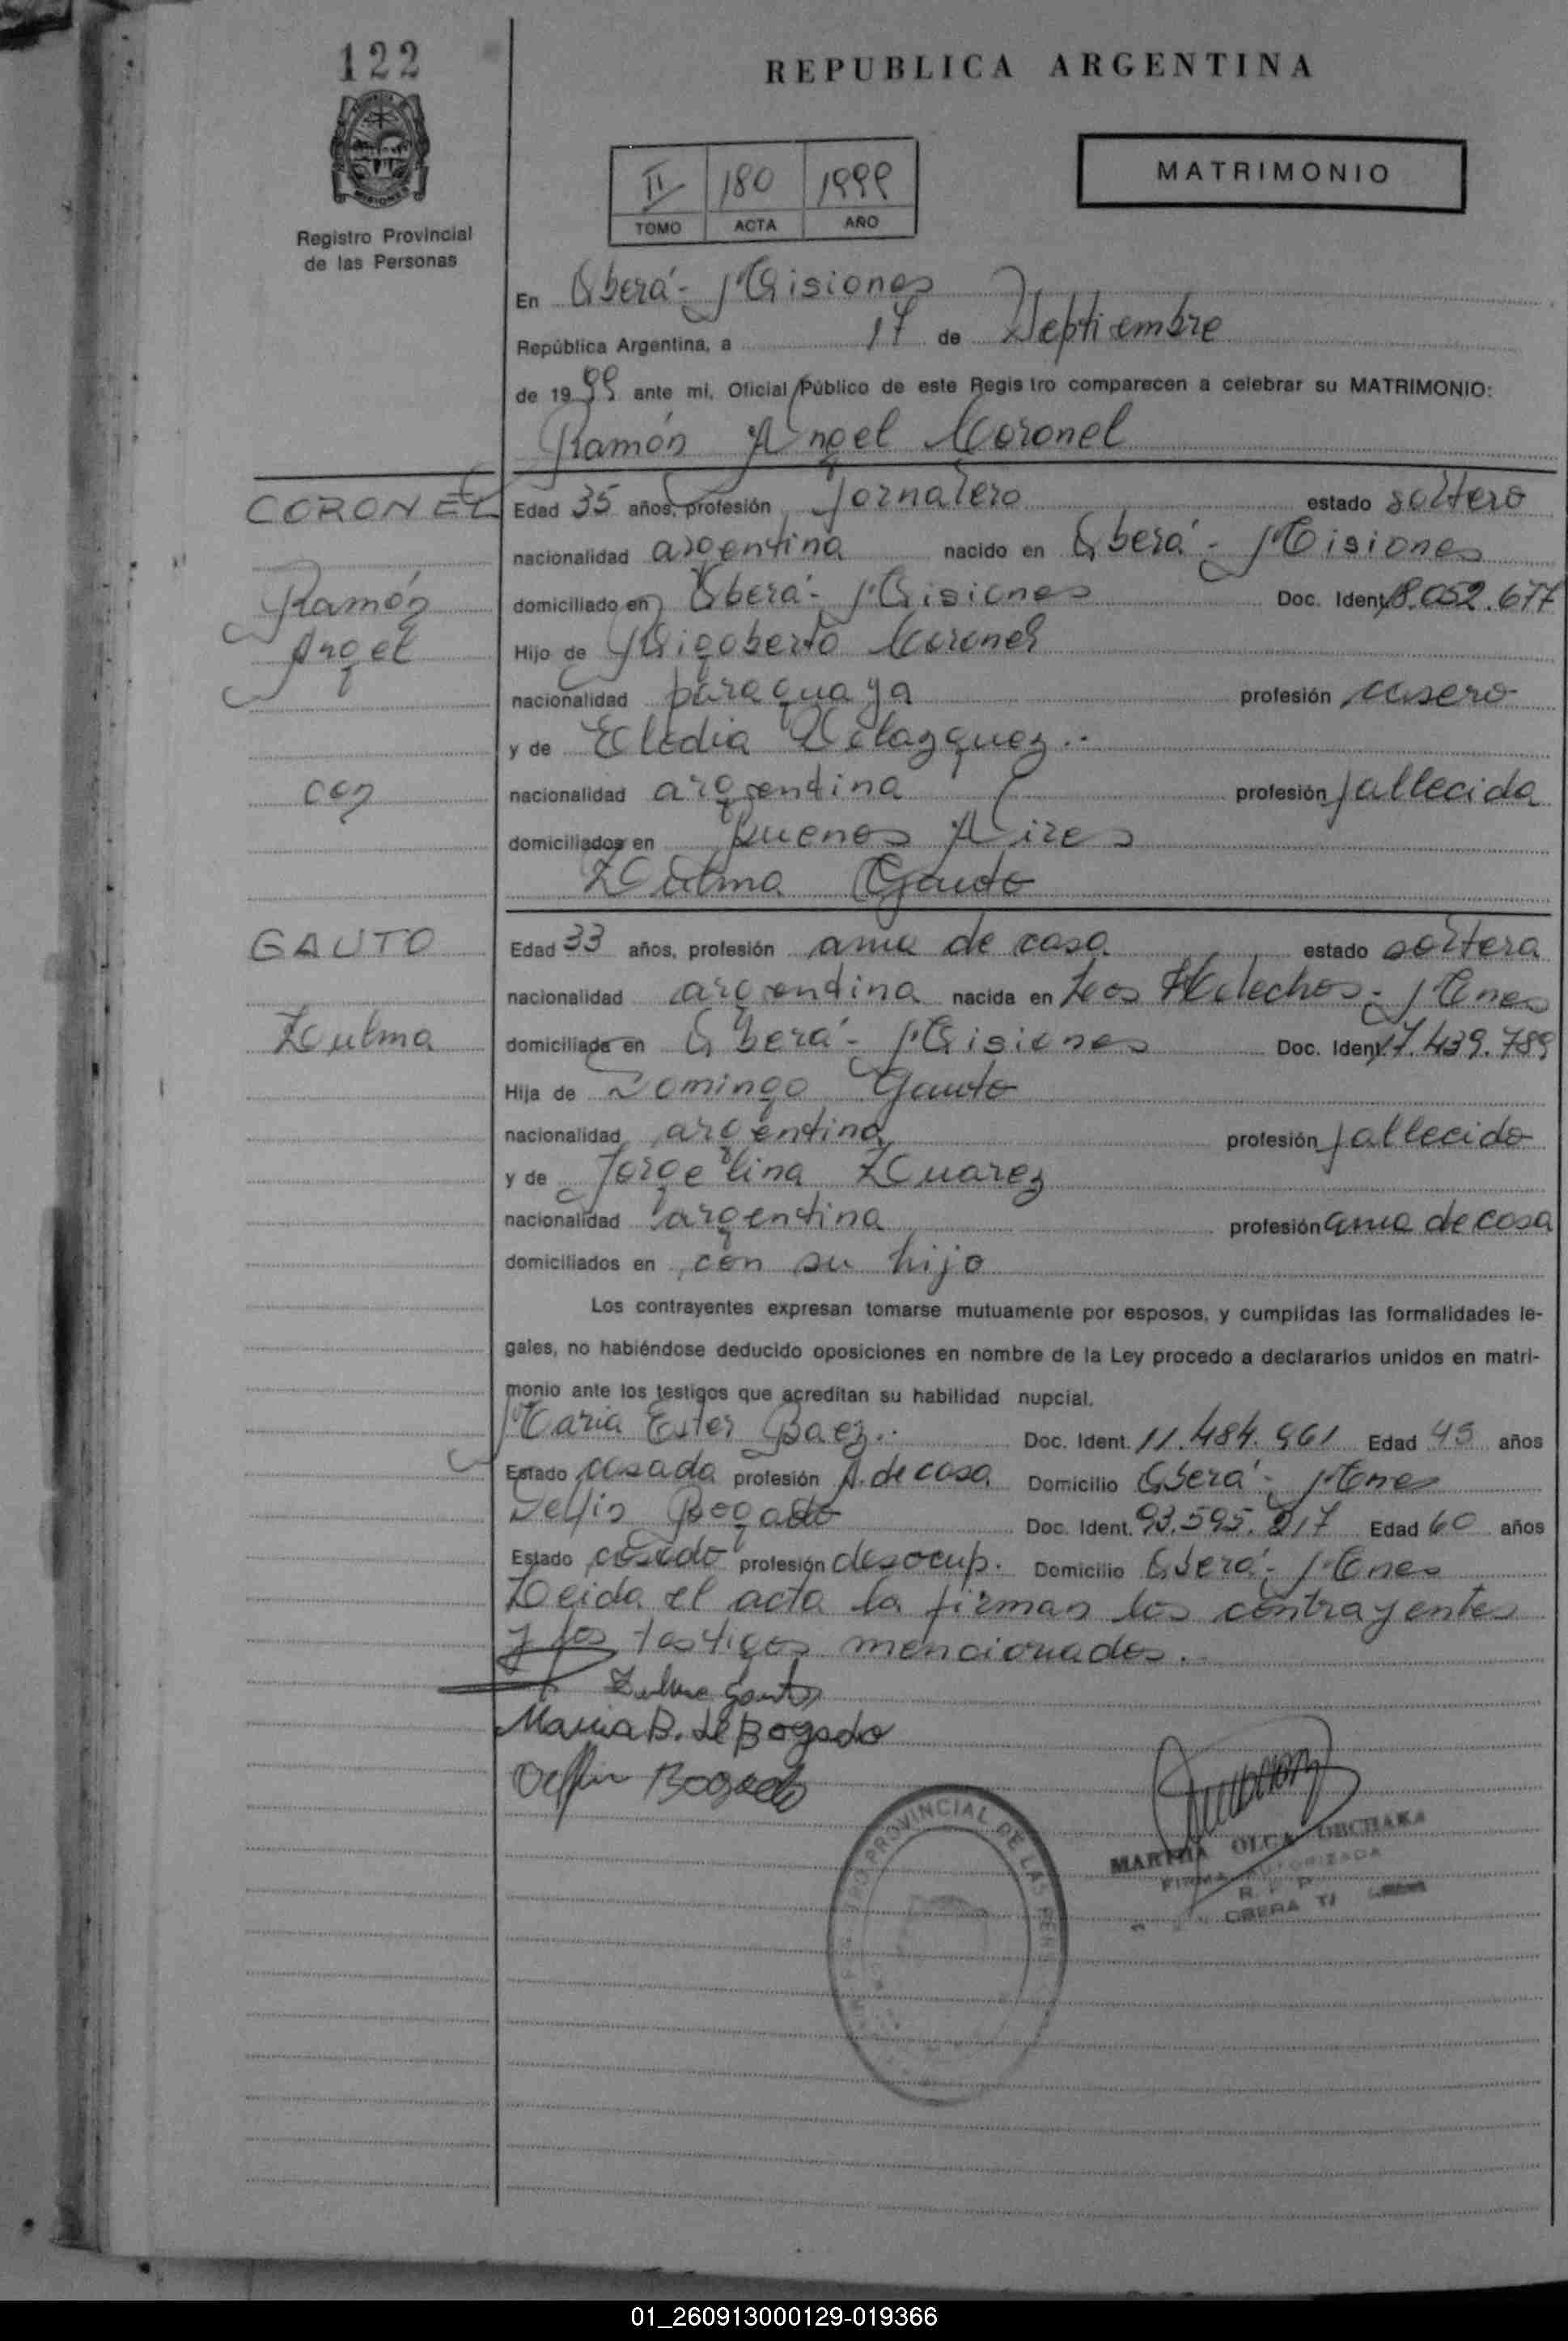 122
REPUBLICA ARGENTINA
MATRIMONIO
II 180 1999
TOMO ACTA AÑO
Registro Provincial
de las Personas
En Oberá - Misiones
República Argentina, a 17 de Septiembre
de 1999 ante mi, Oficial Público de este Registro comparecen a celebrar su MATRIMONIO:
Ramón Angel Coronel
CORONEL
Ramón
Angel
con
Edad 35 años, profesión Jornalero estado soltero
nacionalidad argentina nacido en Oberá - Misiones
domiciliado en Oberá - Misiones Doc. Ident. 18.052.677
Hijo de Rigoberto Coronel
nacionalidad paraguaya profesión casero
y de Elodia Velazquez.-
nacionalidad argentina profesión fallecida
domiciliados en Buenos Aires
Zulma Gauto
GAUTO
Zulma
Edad 33 años, profesión ama de casa estado soltera
nacionalidad argentina nacida en Los Helechos - Mnes
domiciliada en Oberá - Misiones Doc. Ident. 17.439.789
Hija de Domingo Gauto
nacionalidad argentina profesión fallecido
y de Jorgelina Zuarez
nacionalidad argentina profesión ama de casa
domiciliados en con su hijo
Los contrayentes expresan tomarse mutuamente por esposos, y cumplidas las formalidades le-
gales, no habiéndose deducido oposiciones en nombre de la Ley procedo a declararlos unidos en matri-
monio ante los testigos que acreditan su habilidad nupcial.
Maria Ester Baez.- Doc. Ident. 11.484.961 Edad 45 años
Estado casada profesión A. de casa Domicilio Oberá - Mnes
Delfin Bogado Doc. Ident. 93.595.217 Edad 60 años
Estado casado profesión desocup. Domicilio Oberá - Mnes
Leida el acta la firman los contrayentes
y los testigos mencionados.
Zulma Gauto
Maria B. de Bogado
Delfin Bogado
PROVINCIAL DE LAS PERS
MARTHA OLGA OBCHAKA
FIRMA AUTORIZADA
R. P. P.
OBERA
01_260913000129-019366